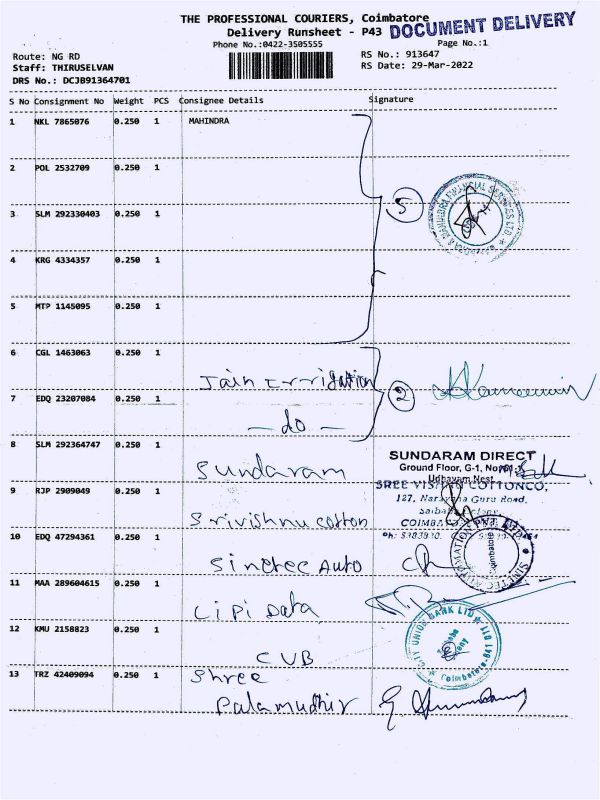 THE PROFESSIONAL COURIERS, Coimbatore
Delivery Runsheet - P43
DOCUMENT DELIVERY
Phone No.:0422-3505555
Page No.:1
Route: NG RD
RS No.: 913647
Staff: THIRUSELVAN
RS Date: 29-Mar-2022
DRS No.: DCJB91364701
S No Consignment No Weight PCS Consignee Details Signature
1 NKL 7865076 0.250 1 MAHINDRA
2 POL 2532709 0.250 1
3 SLM 292330403 0.250 1
5
MAHINDRA FINANCIAL SERVICES LTD.
4 KRG 4334357 0.250 1
5 MTP 1145095 0.250 1
6 CGL 1463063 0.250 1
Jain Irrigation
2
7 EDQ 23207084 0.250 1
- do -
8 SLM 292364747 0.250 1
Sundaram
SUNDARAM DIRECT
Ground Floor, G-1,
Udhayam Nest
9 RJP 2909049 0.250 1
Srivishnu cotton
SREE VISHNU COTTONCO,
127, Narayana Guru Road,
Saibaba Colony
COIMB
10 EDQ 47294361 0.250 1
Sinetec Auto
SINETEC AUTOMATION PVT LTD
Coimbatore
11 MAA 289604615 0.250 1
Lipi Data
12 KMU 2158823 0.250 1
CUB
CITY UNION BANK LTD
Coimbatore
13 TRZ 42409094 0.250 1
Shree
Palamudhir